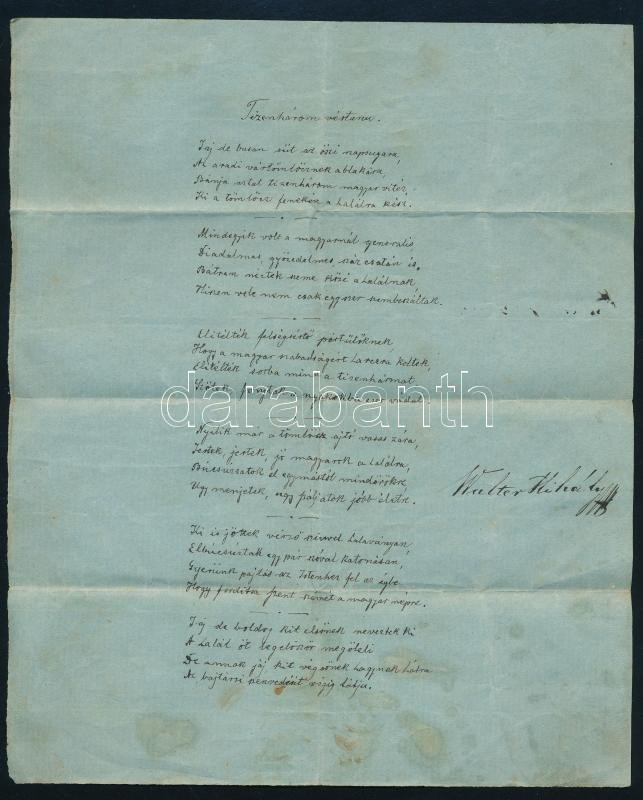 Tizenhárom vértanu.
Jaj de busan süt az őszi napsugara,
Az aradi vártömlöcznek ablakára,
Bánja aztat tizenhárom magyar vitéz,
Ki a tömlöcz fenekén a halálra kész.
Mindegyik volt a magyarnál generális,
Diadalmas, győzedelmes száz csatán is.
Bátran néztek szeme közé a halálnak
Hiszen vele nem csak egyszer szembeszáltak.
Elitélték felségsértő pártütőknek
Hogy a magyar szabadságért harczra keltek,
Elitélték sorba mind a tizenhármat
a nyakukba ezer vádat.
Nyilik már a tömlöcz ajtó vasas zára,
Jertek, jertek, jó magyarok a halálra,
Búcsúzzatok el egymástól mindörökre,
Ugy menjetek, ugy páljatok jobb életre.
Walter Mihály
Ki is jöttek vérző szivvel halaványan,
Elbucsúztak egy pár szóval katonásan,
Gyerünk pajtás az Istenhez fel az égbe
Hogy fordítsa szent szemét a magyar népre.
Jaj de boldog kit elsőnek neveztek ki
A halál öt legelőször megöleli
De annak jaj kit végsőnek hagynak hátra
Az bajtársi szenvedését végig látja.
darabanth